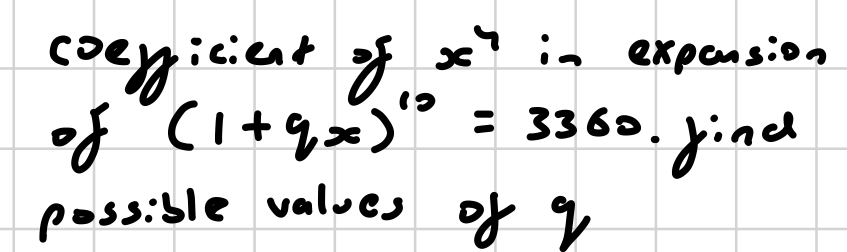 coefficient of x⁴ in expansion
of (1 + qx)¹⁰ = 3360. find
possible values of q